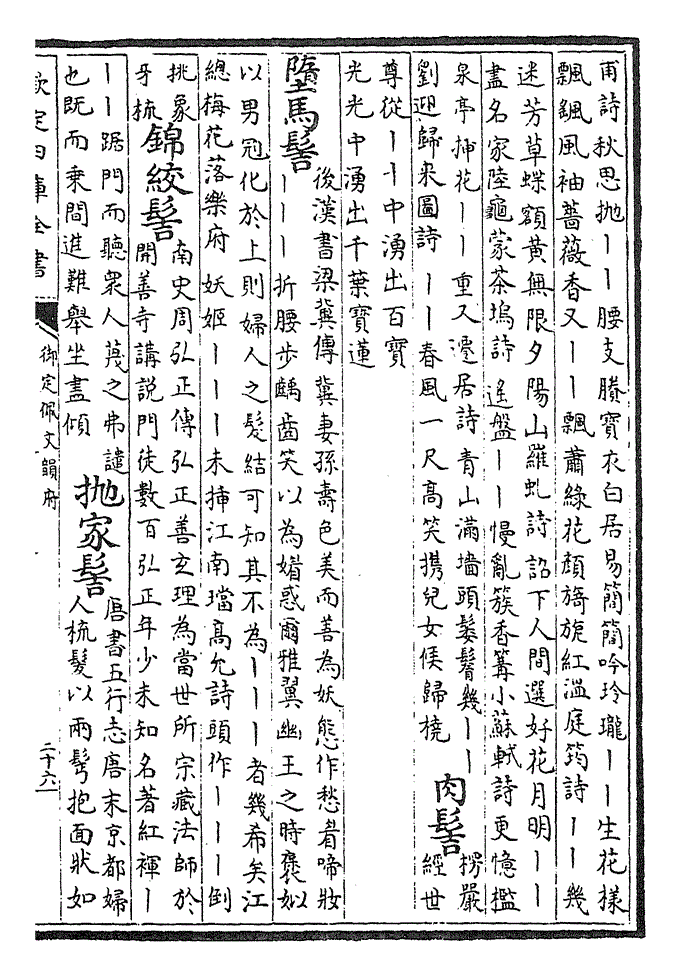 甫詩秋思抛丨丨腰支賸寶衣白居易簡簡吟玲瓏丨丨生花樣
飄颻風袖薔薇香又丨丨飄蕭綠花顏旖旎紅溫庭筠詩丨丨幾
迷芳草蝶額黄無限夕陽山羅虬詩詔下人間選好花月明丨丨
盡名家陸龜蒙茶塢詩遥盤丨丨慢亂簇香篝小蘇軾詩更憶檻
泉亭揷花丨丨重又遷居詩青山滿墻頭鬖髿幾丨丨
劉迎歸来圖詩丨丨春風一尺髙笑携兒女候歸橈
肉髻
楞嚴
經世
尊從丨丨中湧出百寶
光光中湧出千葉寶蓮
墮馬髻
後漢書梁冀傳冀妻孫壽色美而善為妖態作愁眉啼妝
丨丨丨折腰步齲齒笑以為媚惑爾雅翼幽王之時褒姒
以男冠化於上則婦人之髮結可知其不為丨丨丨者幾希矣江
總梅花落樂府妖姬丨丨丨未揷江南璫髙允詩頭作丨丨丨倒
挑象
牙梳
錦絞髻
南史周弘正傳弘正善玄理為當世所宗藏法師於
開善寺講説門徒數百弘正年少未知名著紅褌丨
丨丨踞門而聽衆人蔑之弗譴
也既而乗間進難舉坐盡傾
抛家髻
唐書五行志唐末京都婦
人梳髮以兩髩抱面狀如
欽定四庫全書
御定佩文韻府
二十六